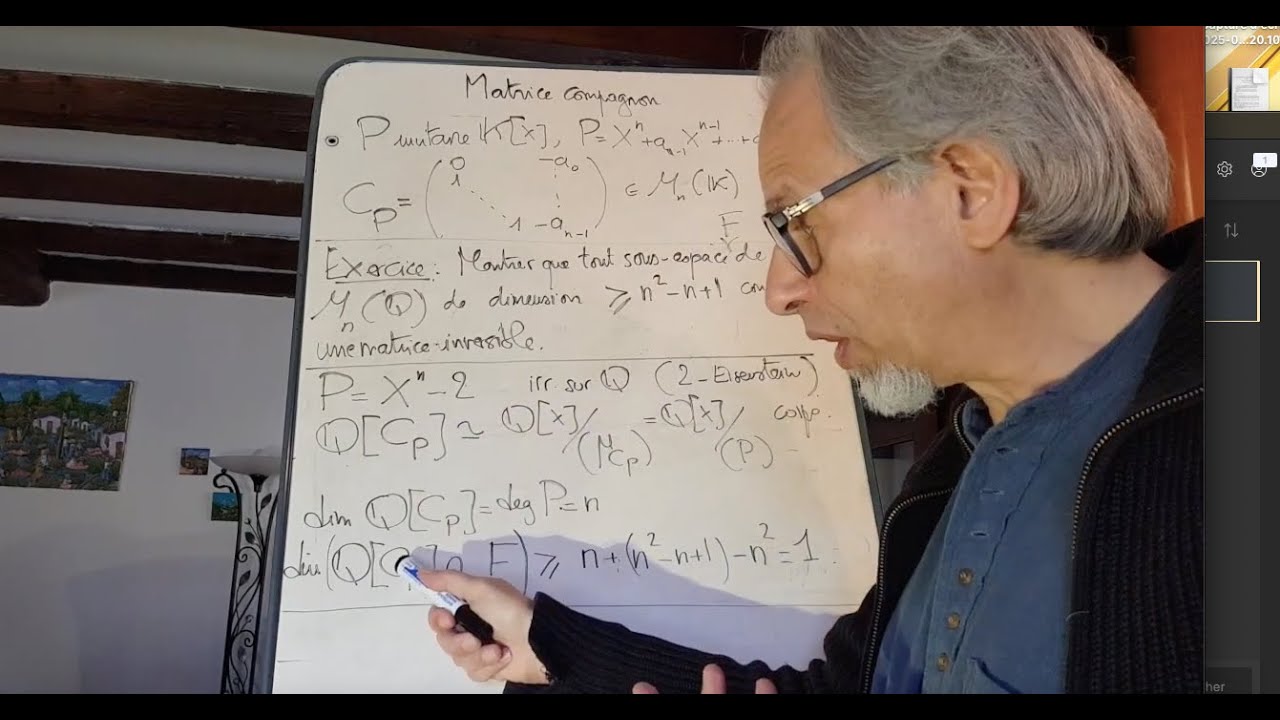 Matrice compagnon
P unitaire K[X], P = Xⁿ + aₙ₋₁Xⁿ⁻¹ + ... +
C_P = ( 0 1 1 -a₀ -aₙ₋₁ ) ∈ Mₙ(K)
F
Exercice : Montrer que tout sous-espace de
Mₙ(Q) de dimension ≥ n² - n + 1
une matrice inversible.
P = Xⁿ - 2 irr. sur Q (2-Eisenstein)
Q[C_P] ≃ Q[X]/(μ_C_P) = Q[X]/(P) corps.
dim Q[C_P] = deg P = n
dim(Q[C_P] ∩ F) ≥ n + (n² - n + 1) - n² = 1
1
cher